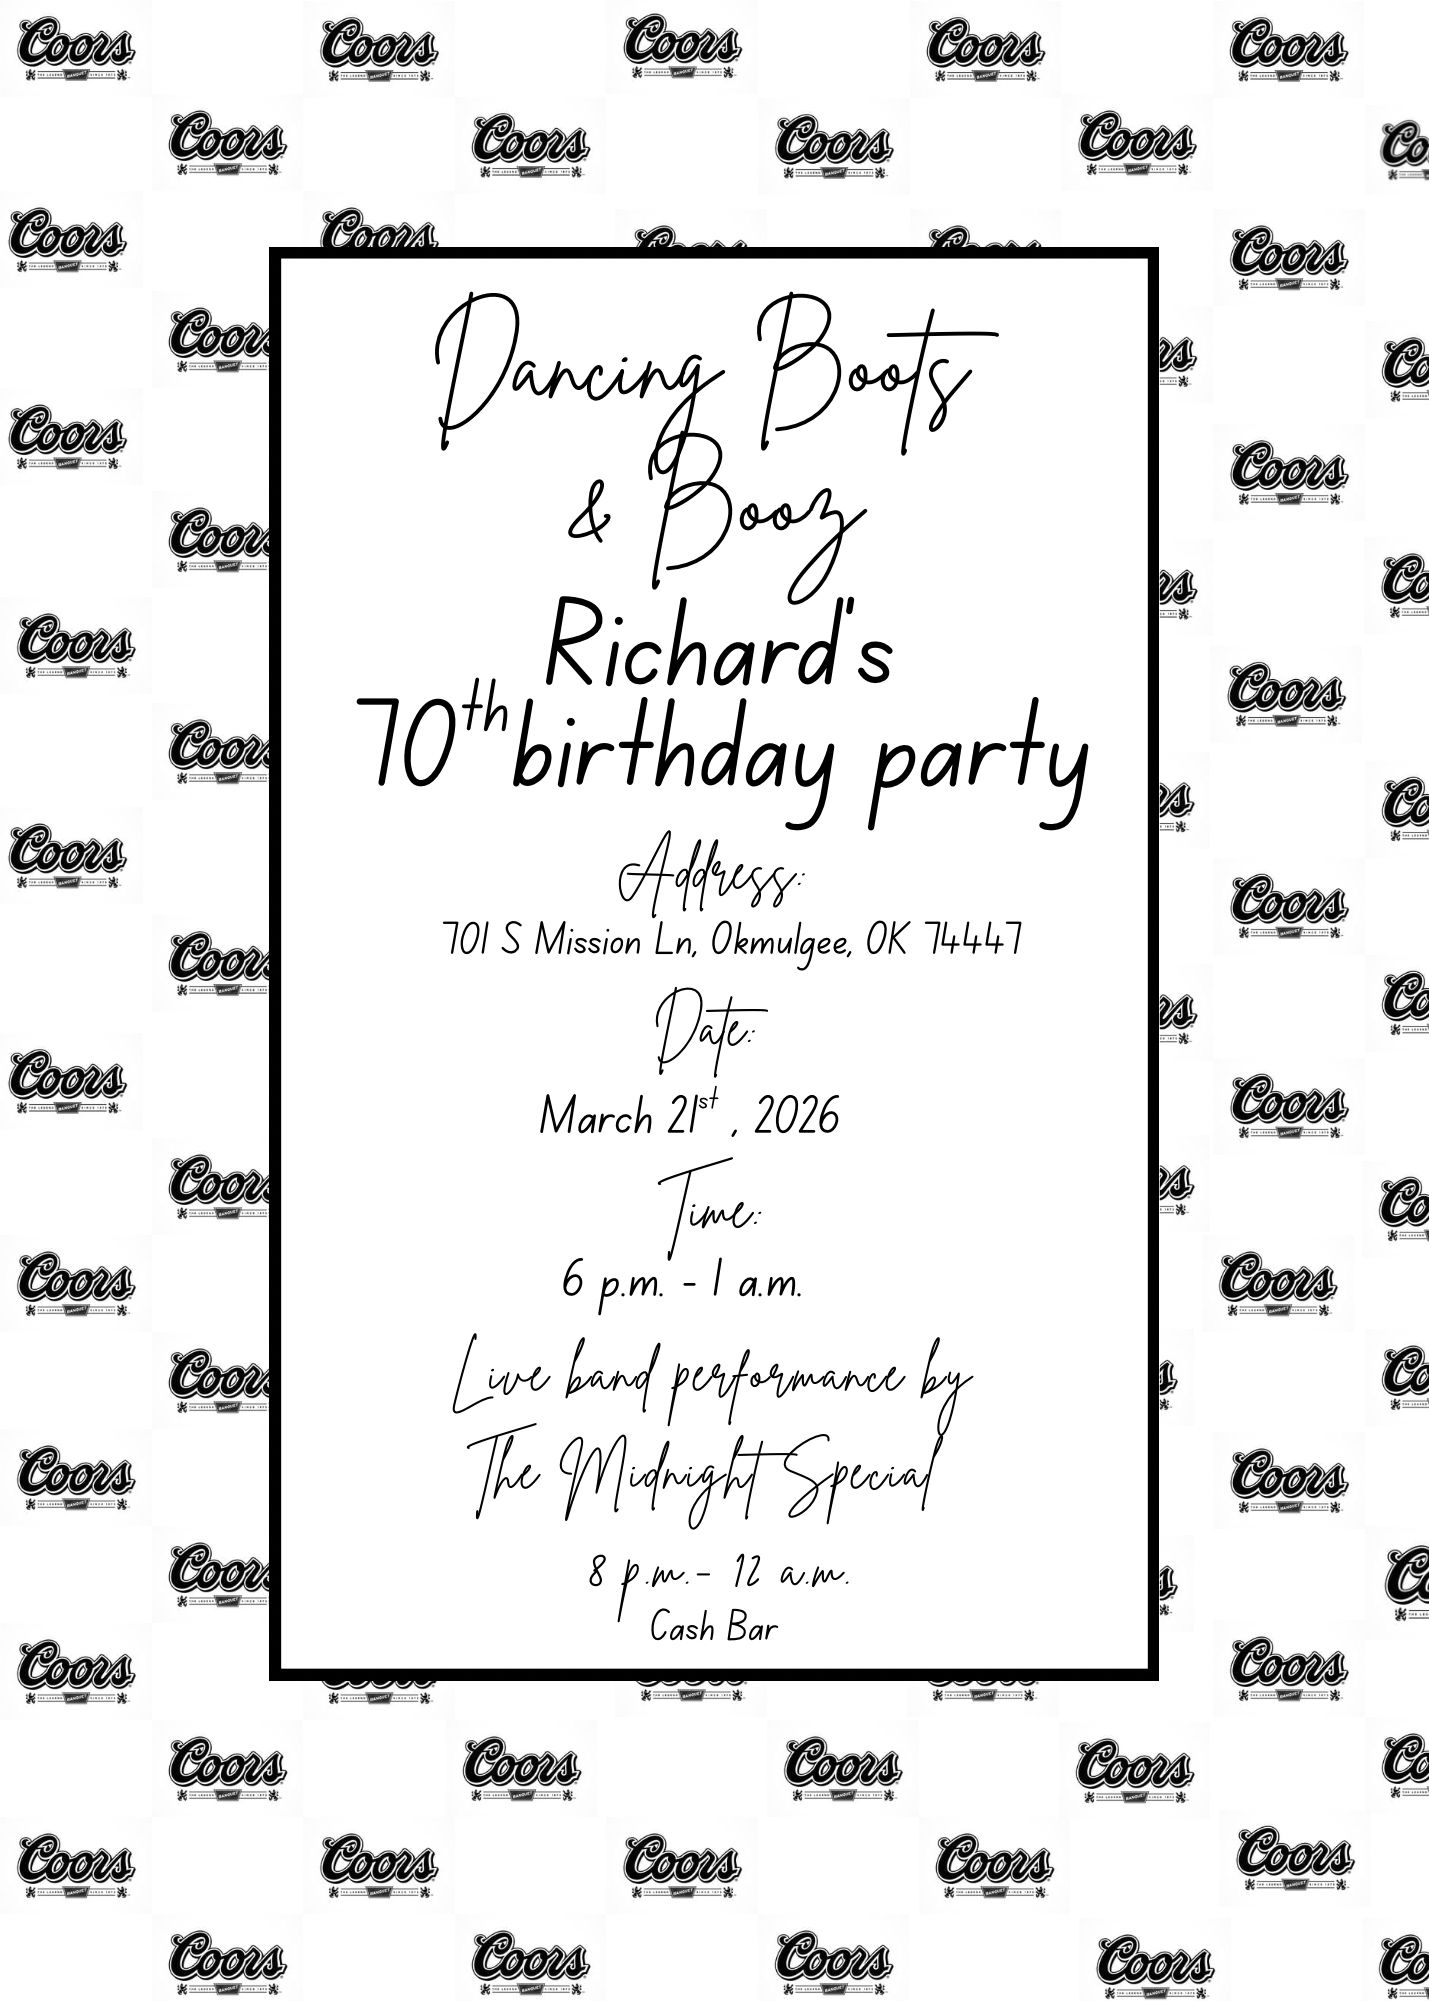 Coors
THE LEGEND BANQUET SINCE 1873
Dancing Boots
& Booz
Richard's
70th birthday party
Address:
701 S Mission Ln, Okmulgee, OK 74447
Date:
March 21st , 2026
Time:
6 p.m. - 1 a.m.
Live band performance by
The Midnight Special
8 p.m.- 12 a.m.
Cash Bar